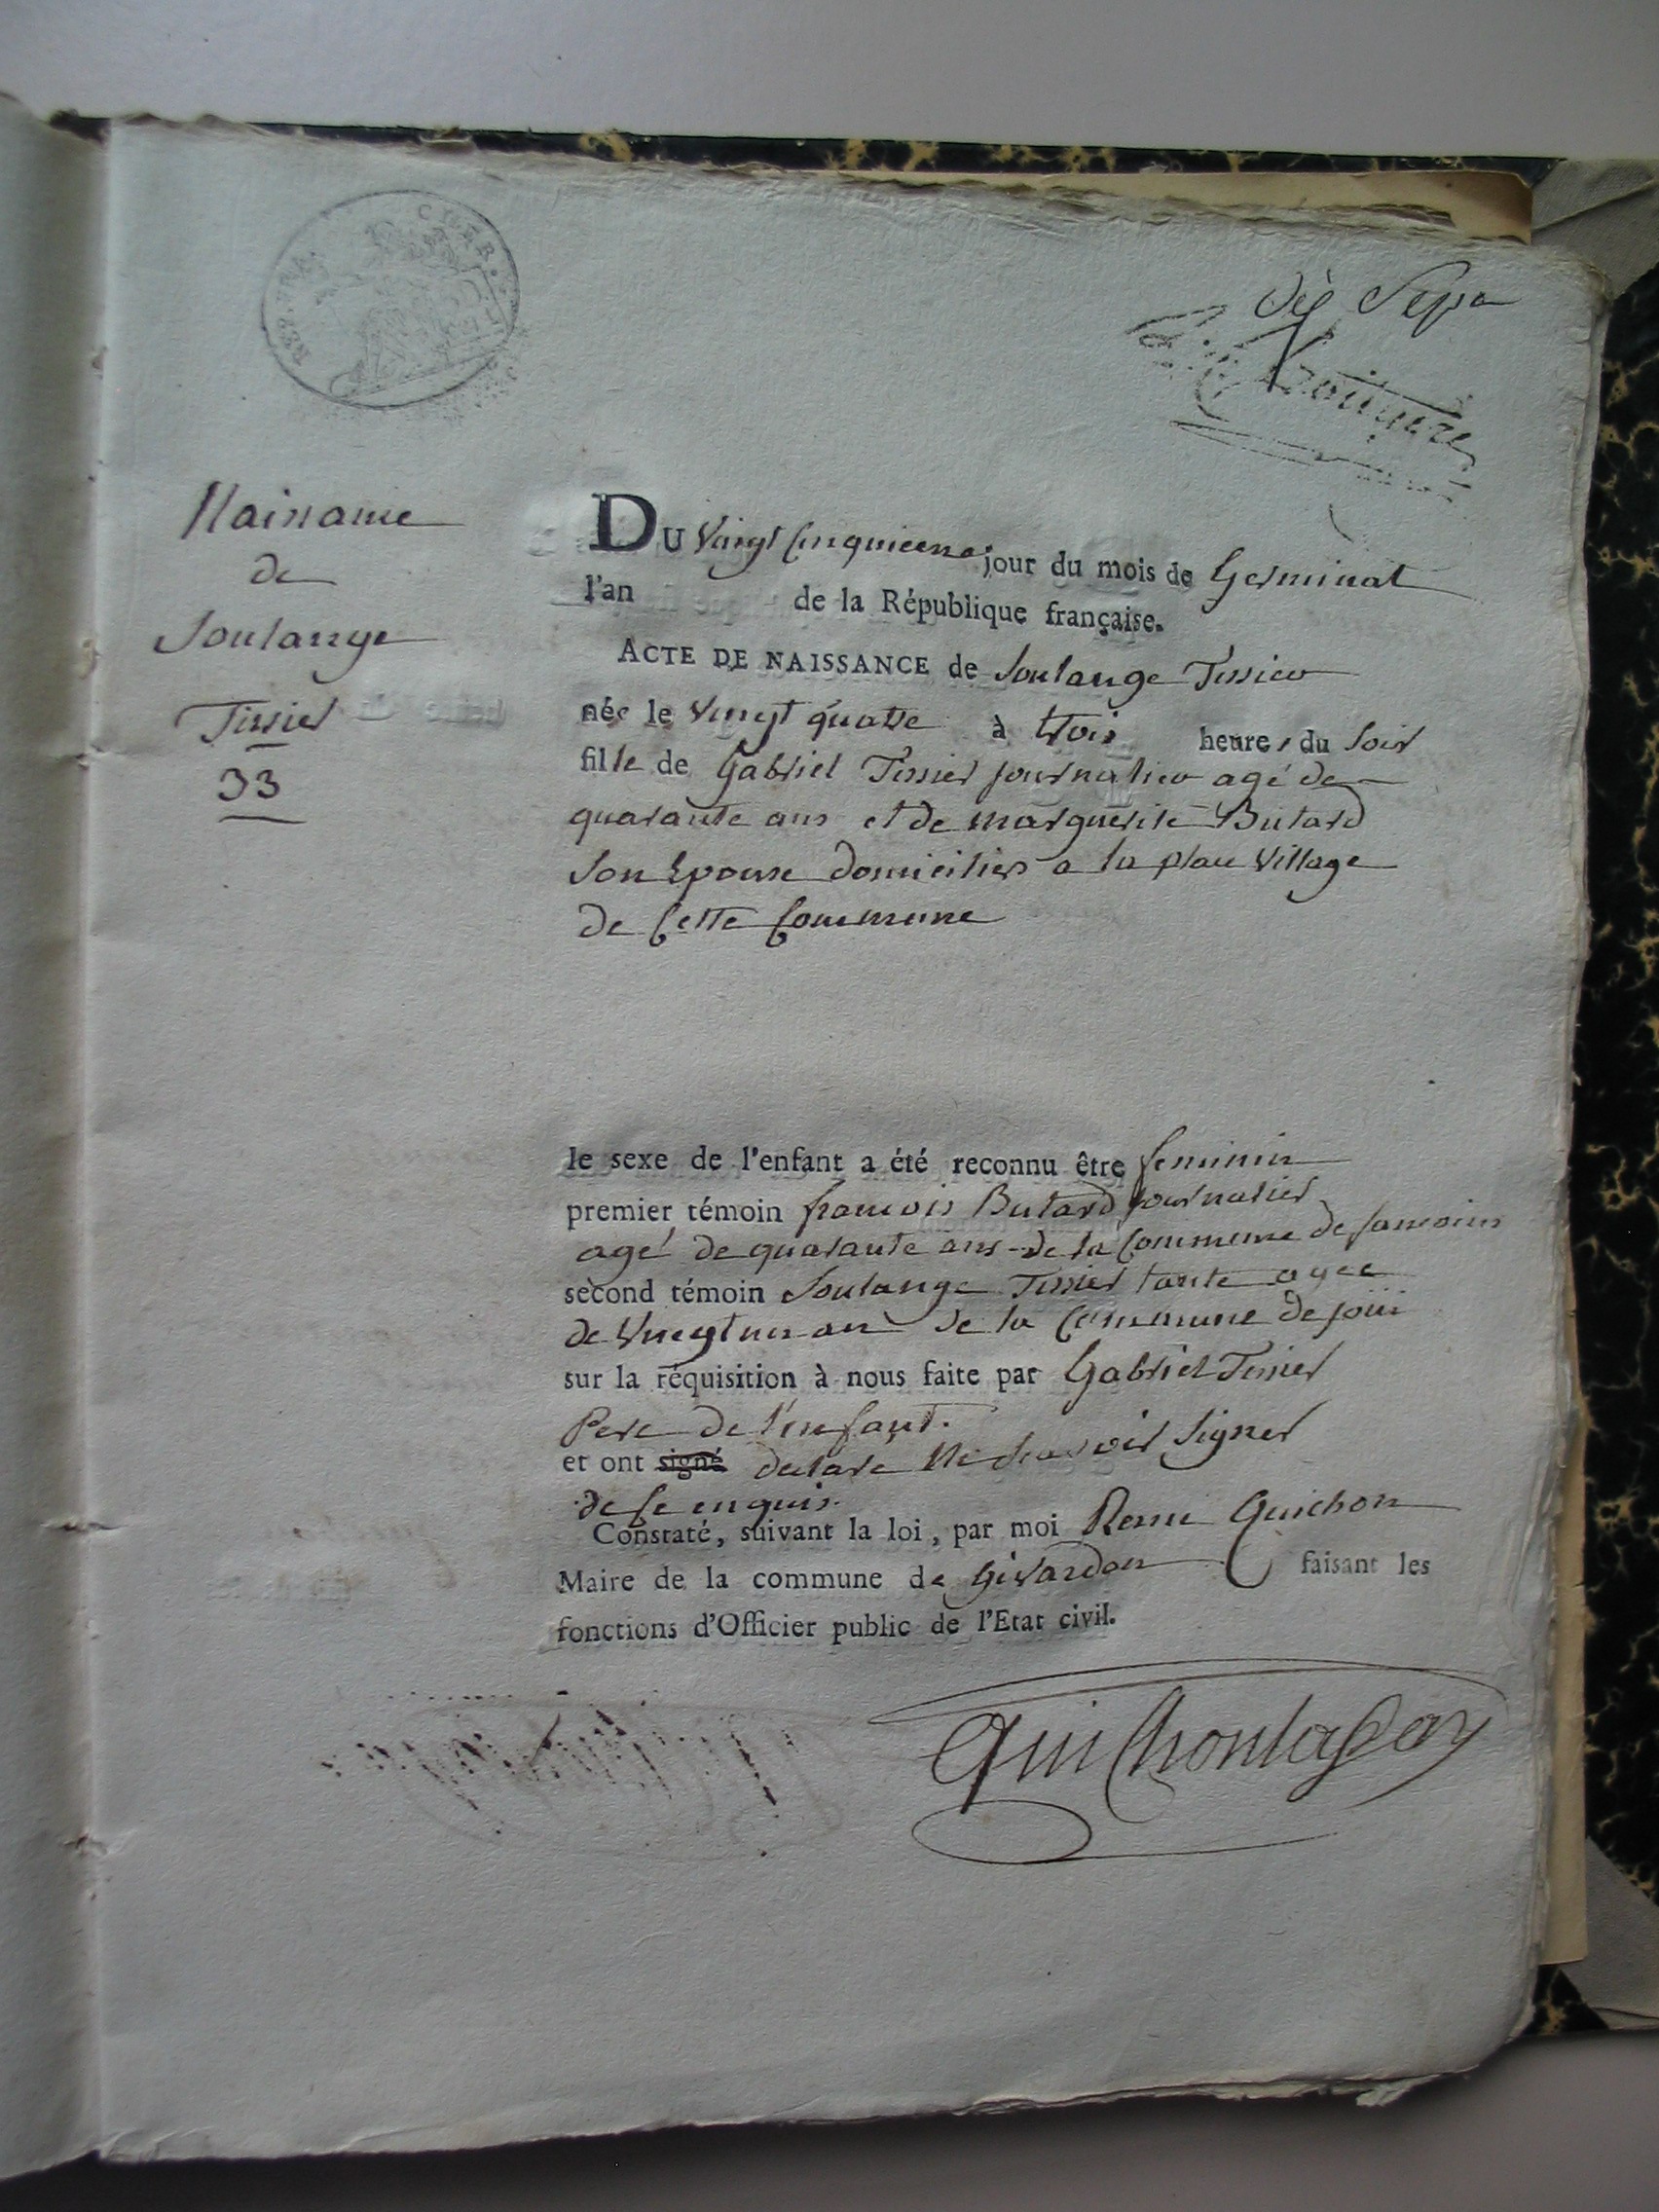 REP. FRA. CHER.
dix Sept
Naissance
de
Soulange
Tissier
33
DU Vingt Cinquieme jour du mois de Germinal
l'an de la République française.
ACTE DE NAISSANCE de Soulange Tissier
née le Vingt quatre à trois heures du Soir
fille de Gabriel Tissier journalier agé de
quarante ans et de marguerite Butard
Son Epouse domiciliés a la place Village
de Cette Commune
le sexe de l'enfant a été reconnu être feminin
premier témoin francois Butard journalier
agé de quarante ans de la Commune de Sancoins
second témoin Soulange Tissier tante agee
de Vingt un an de la Commune de joüi
sur la réquisition à nous faite par Gabriel Tissier
Pere de l'enfant.
et ont signé declare Ne Scavoir Signer
de Ce enquis.
Constaté, suivant la loi, par moi Remi Quichon
Maire de la commune de Givardon faisant les
fonctions d'Officier public de l'Etat civil.